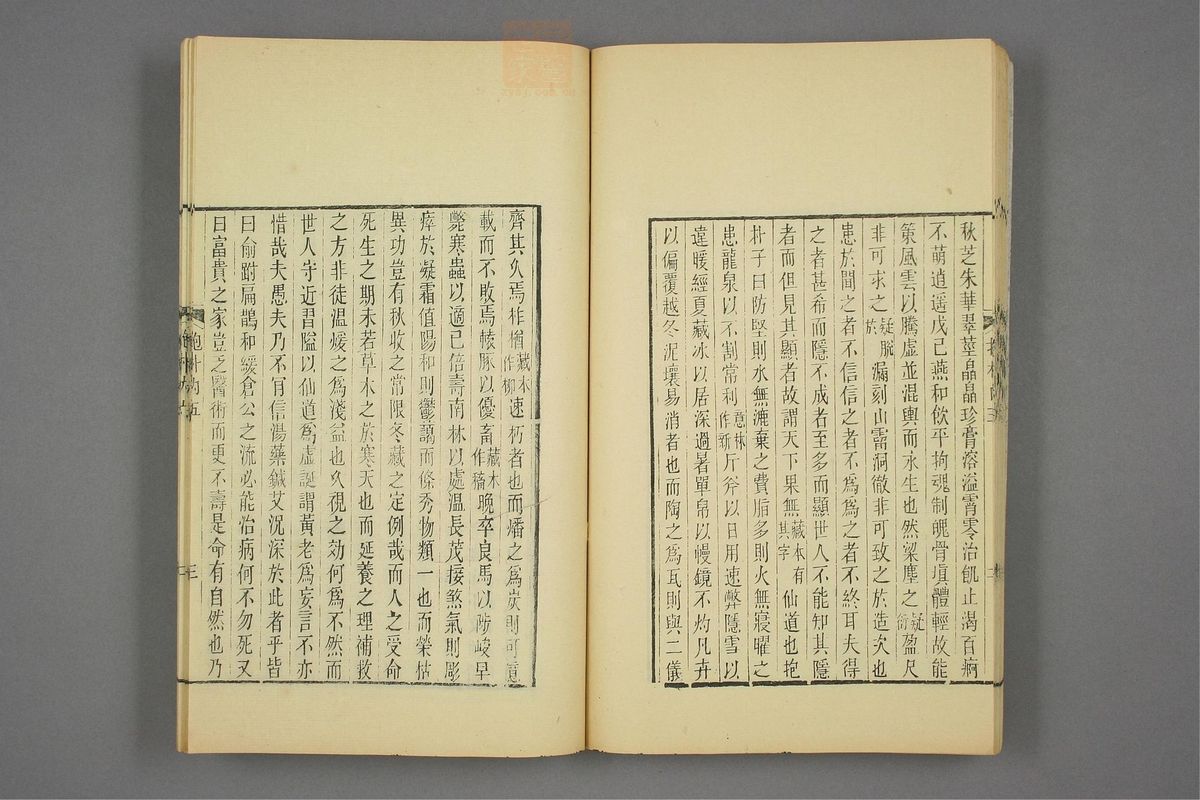 秋芝朱華翠莖晶晶珍膏溶溢霄零治飢止渴百痾
不萌逍遥戊己燕和飲平拘魂制魄骨塡體輕故能
策風雲以騰虛並混輿而永生也然梁塵之疑衍盈尺
非可求之疑脱於漏刻山霤洞徹非可致之於造次也
患於聞之者不信信之者不爲爲之者不終耳夫得
之者甚希而隱不成者至多而顯世人不能知其隱
者而但見其顯者故謂天下果無藏本有其字仙道也抱
朴子曰防堅則水無漉棄之費脂多則火無寢曜之
患龍泉以不割常利意林作新斤斧以日用速弊隱雪以
違暖經夏藏冰以居深過暑單帛以幔鏡不灼凡卉
以偏覆越冬泥壤易消者也而陶之爲瓦則與二儀
抱朴内五
三
齊其久焉柞楢藏本作柳速朽者也而燔之爲炭則可億
載而不敗焉轅豚以優畜藏本作穡晚卒良馬以陟峻早
斃寒蟲以適己倍壽南林以處温長茂接煞氣則彫
瘁於凝霜值陽和則鬱藹而條秀物類一也而榮枯
異功豈有秋收之常限冬藏之定例哉而人之受命
死生之期未若草木之於寒天也而延養之理補救
之方非徒温煖之爲淺益也久視之効何爲不然而
世人守近習隘以仙道爲虛誕謂黃老爲妄言不亦
惜哉夫愚夫乃不肯信湯藥鍼艾況深於此者乎皆
曰俞跗扁鵲和緩倉公之流必能治病何不勿死又
曰富貴之家豈乏醫術而更不壽是命有自然也乃